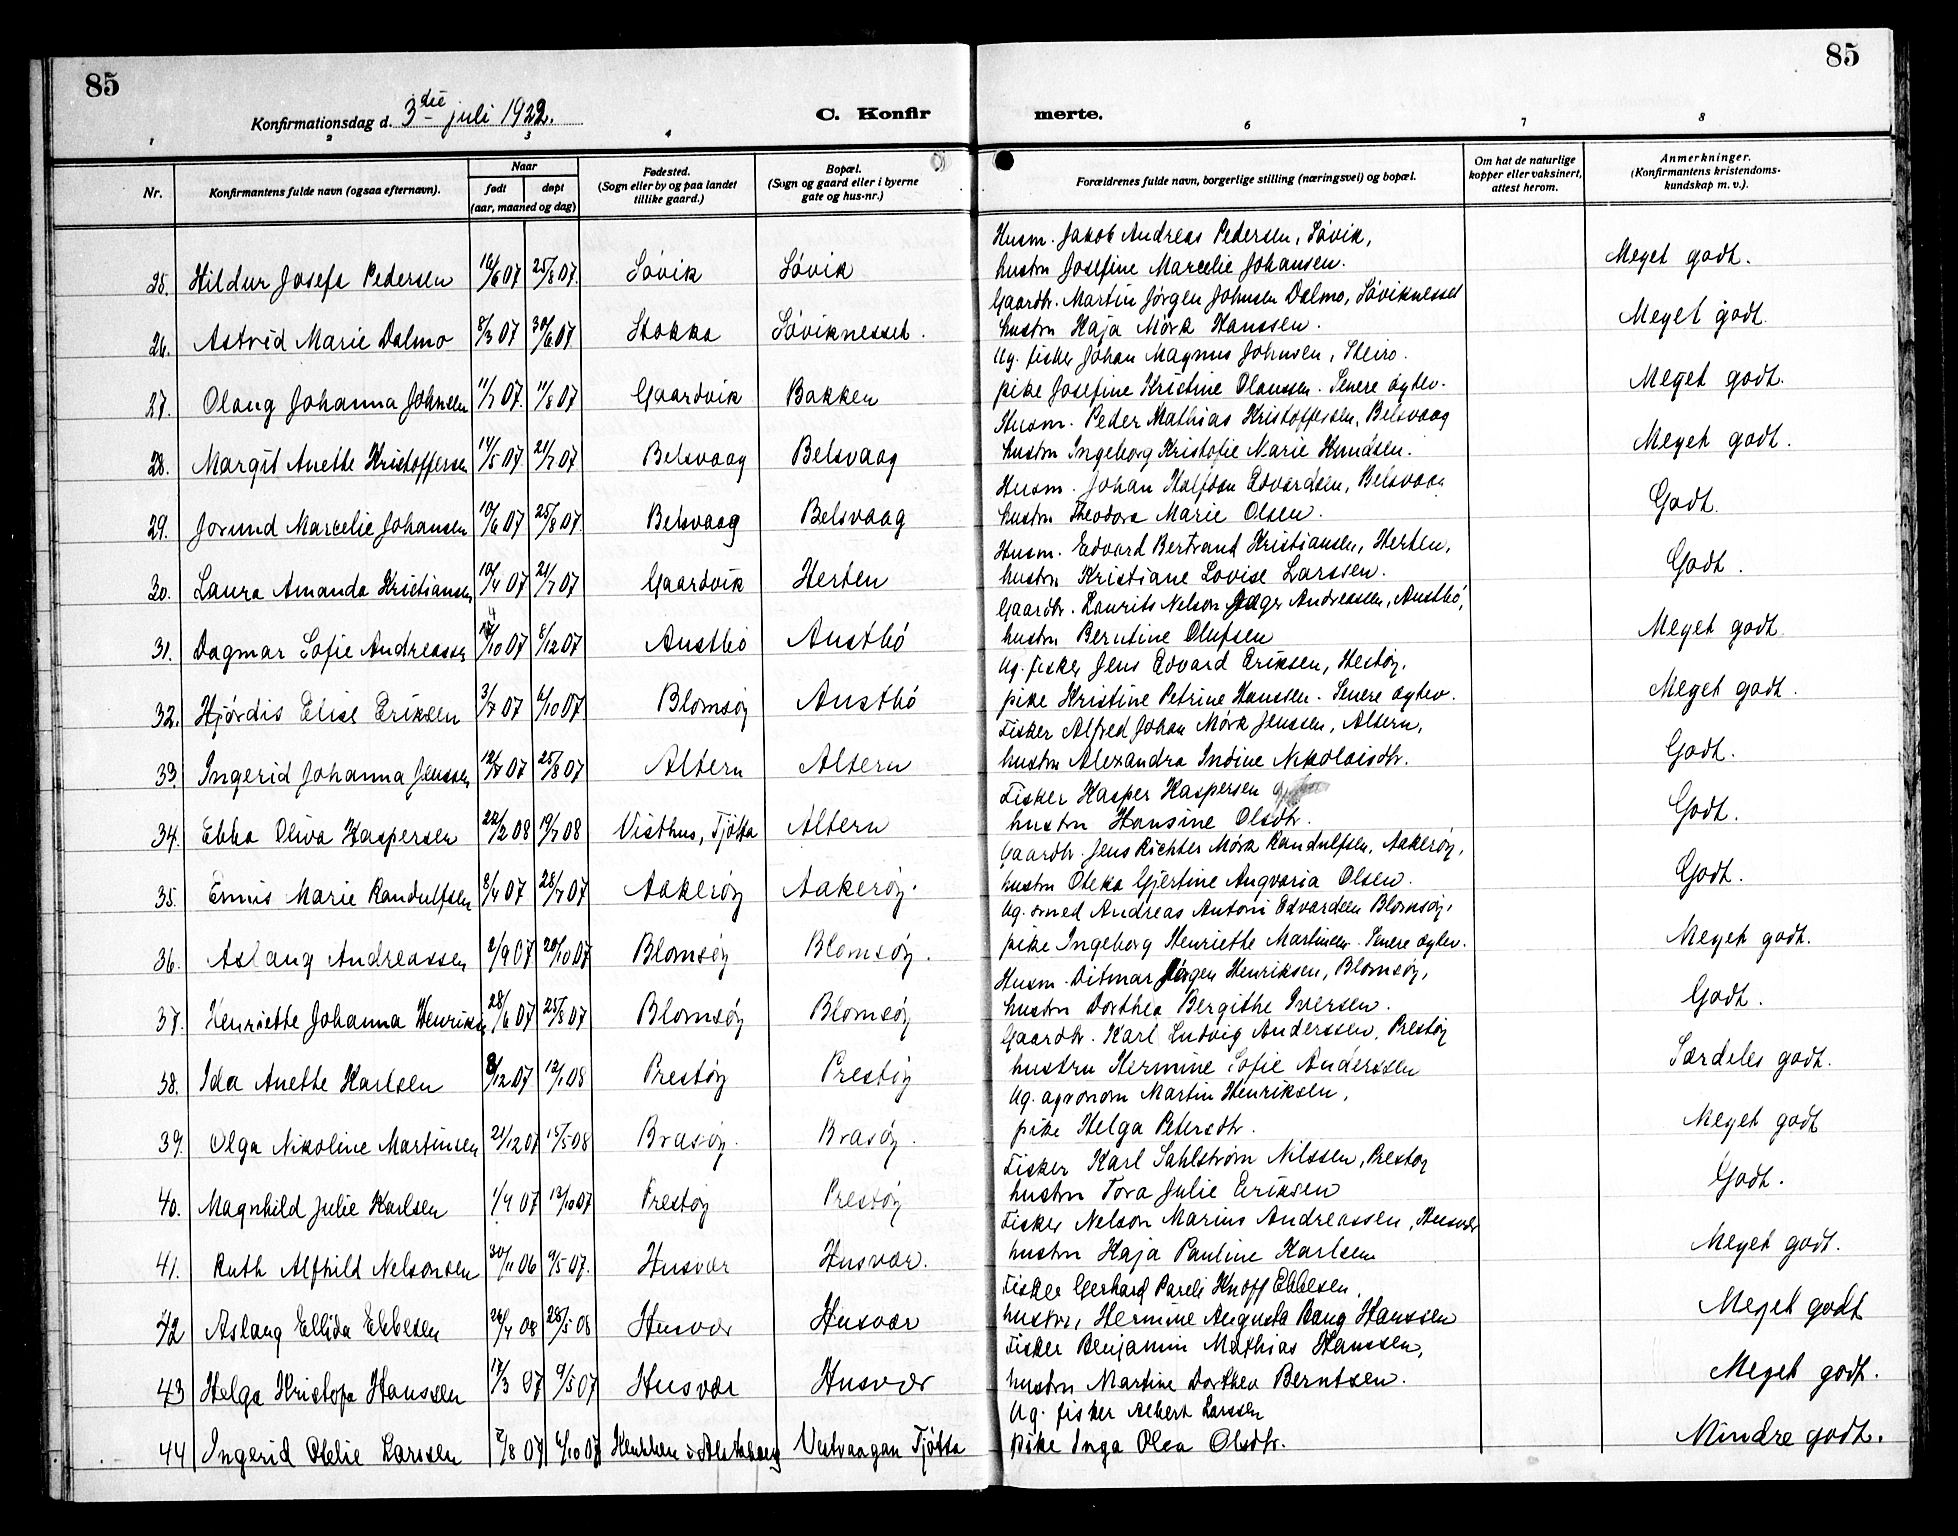 85
85
Konfirmationsdag d. 3die juli 1922.
C. Konfir
merte.
1 2 3 4 6 7 8
Nr.
Konfirmantens fulde navn (ogsaa efternavn).
Naar
født
døpt
(aar, maaned og dag)
Fødested.
(Sogn eller by og paa landet
tillike gaard.)
Bopæl.
(Sogn og gaard eller i byerne
gate og hus-nr.)
Forældrenes fulde navn, borgerlige stilling (næringsvei) og bopæl.
Om hat de naturlige
kopper eller vaksinert,
attest herom.
Anmerkninger.
(Konfirmantens kristendoms-
kundskap m. v.).
Husm. Jakob Andreas Pedersen, Søvik,
25. Hildur Josefa Pedersen 12/6 07 25/8 07. Søvik Søvik hustru Josefine Marcelie Johansen. Meget godt.
Gaardbr. Martin Jørgen Johnsen Dalmo, Søviknesset
26. Astrid Marie Dalmo 8/3 07 30/6 07 Stokka Søviknesset. hustru Haja Mørk Hanssen. Meget godt.
Ug. fisker Johan Magnus Johnsen, Steiro.
27. Olaug Johanna Johnsen 11/7 07. 11/8 07 Gaardvik Bakken pike Josefine Kristine Olaussen. Senere egtev. Meget godt.
Husm. Peder Mathias Kristoffersen, Belsvaag
28. Margit Anette Kristoffersen 14/5 07 21/7 07 Belsvaag Belsvaag hustru Ingeborg Kristofie Marie Knudsen. Meget godt.
Husm. Johan Halfdan Edvardsen, Belsvaag
29. Jorund Marcelie Johansen 10/6 07 25/8 07. Belsvaag Belsvaag hustru Theodora Marie Olsen. Godt.
Husm. Edvard Bertrand Kristiansen, Herten,
30. Laura Amanda Kristiansen 10/4 07 21/7 07 Gaardvik Herten hustru Kristiane Lovise Larssen. Godt.
Gaardbr. Laurits Nelson Jager Andreassen, Austbø,
31. Dagmar Sofie Andreassen /10 07 8/12 07 Austbø Austbø hustru Berntine Olufsen Meget godt.
Ug. fisker Jens Edvard Eriksen, Hestøy.
32. Hjørdis Elise Eriksen 3/7 07 6/10 07 Blomsøy Austbø pike Kristine Petrine Hanssen. Senere egtev. Meget godt.
Fisker Alfred Johan Mørk Jenssen, Altern,
33. Ingerid Johanna Jenssen 12/7 07 25/8 07 Altern Altern hustru Alexandra Indine Nikolaisdtr. Godt.
Fisker Kasper Kaspersen
34. Ebba Oliva Kaspersen 22/2 08 19/7 08 Visthus, Tjøtta Altern hustru Hansine Olsdtr. Godt.
Gaardbr. Jens Richter Mørk Randulfsen, Aakerøy,
35. Ennis Marie Randulfsen 8/4 07 28/7 07 Aakerøy Aakerøy. hustru Oteka Gjertine Angvaria Olsen. Godt.
Ug. smed Andreas Antoni Edvardsen Blomsøy,
36. Aslaug Andreassen 2/9 07 20/10 07 Blomsøy Blomsøy. pike Ingeborg Henriette Martinsen. Senere egtev. Meget godt.
Husm. Ditmar Jørgen Henriksen, Blomsøy,
37. Henriette Johanna Henriksen 28/6 07 25/8 07 Blomsøy Blomsøy hustru Dorthea Bergithe Iversen. Godt.
Gaardbr. Karl Ludvig Anderssen, Prestøy
38. Ida Anette Karlsen 8/12 07 12/1 08 Prestøy Prestøy hustru Hermine Sofie Anderssen Særdeles godt.
Ug. agronom Martin Henriksen,
39. Olga Nikoline Martinsen 21/12 07 15/5 08 Brasøy. Brasøy. pike Helga Petersdtr. Meget godt
Fisker Karl Sahlstrøm Nilssen, Prestøy
40. Magnhild Julie Karlsen 1/4 07 13/10 07 Prestøy Prestøy hustru Tora Julie Eriksen Godt.
Fisker Nelson Marius Andreassen, Husvær
41. Ruth Alfhild Nelsonsen 30/11 06 9/5 07. Husvær Husvær. hustru Haja Pauline Karlsen Meget godt.
Fisker Gerhard Pareli Knoff Ebbesen,
42 Aslaug Ellida Ebbesen 26/4 08 28/5 08 Husvær Husvær hustru Hermine Augusta Bang Hanssen Meget godt
Fisker Benjamin Mathias Hanssen,
43 Helga Kristofa Hanssen 17/3 07 9/5 07 Husvær Husvær hustru Martine Dorthea Berntsen. Meget godt.
Ug. fisker Albert Larssen
44 Ingerid Otelie Larssen /8 07 6/10 07 i Alstahaug Vestvaagan Tjøtta pike Inga Olea Olsdtr. Mindre godt.